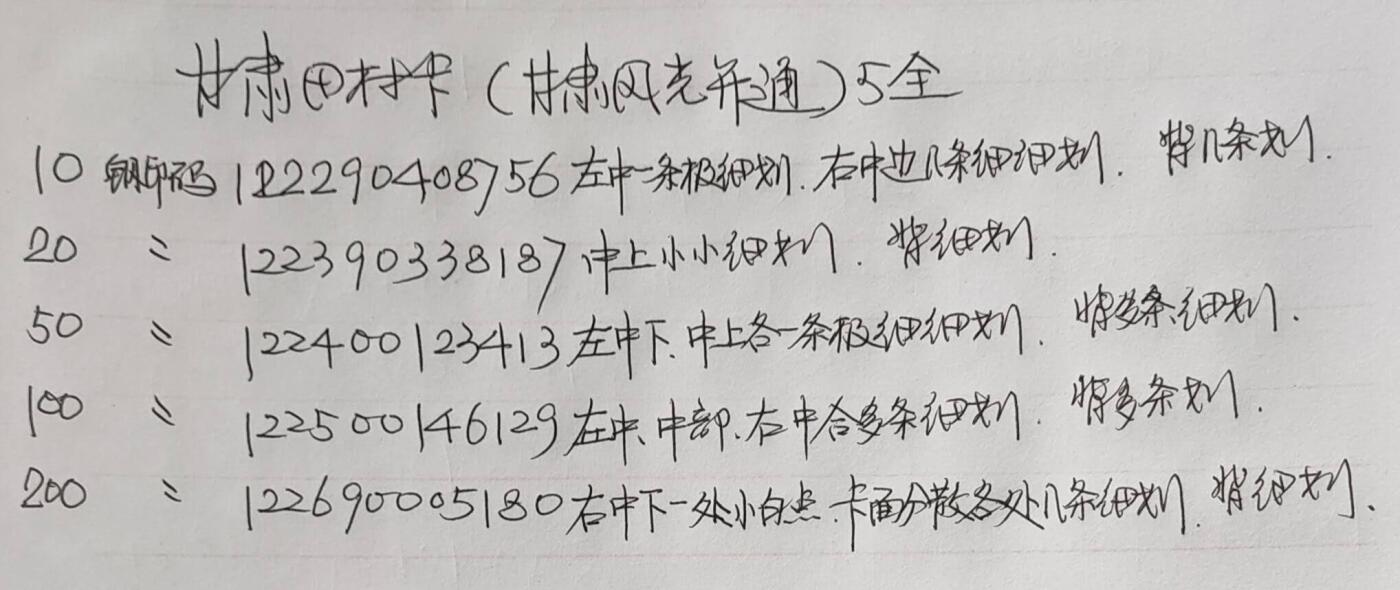 甘肃田村卡(甘肃风光开通)5全
10 钢印码 122290408756 左中一条极细划. 右中边几条细细划. 背几条划.
20 〃 122390338187 中上小小细划. 背细划.
50 〃 122400123413 左中下.中上各一条极细细划. 背多条细划.
100 〃 122500146129 左中、中部.右中合多条细划. 背多条划.
200 〃 122690005180 右中下一处小白点.卡面分散各处几条细划. 背细划.